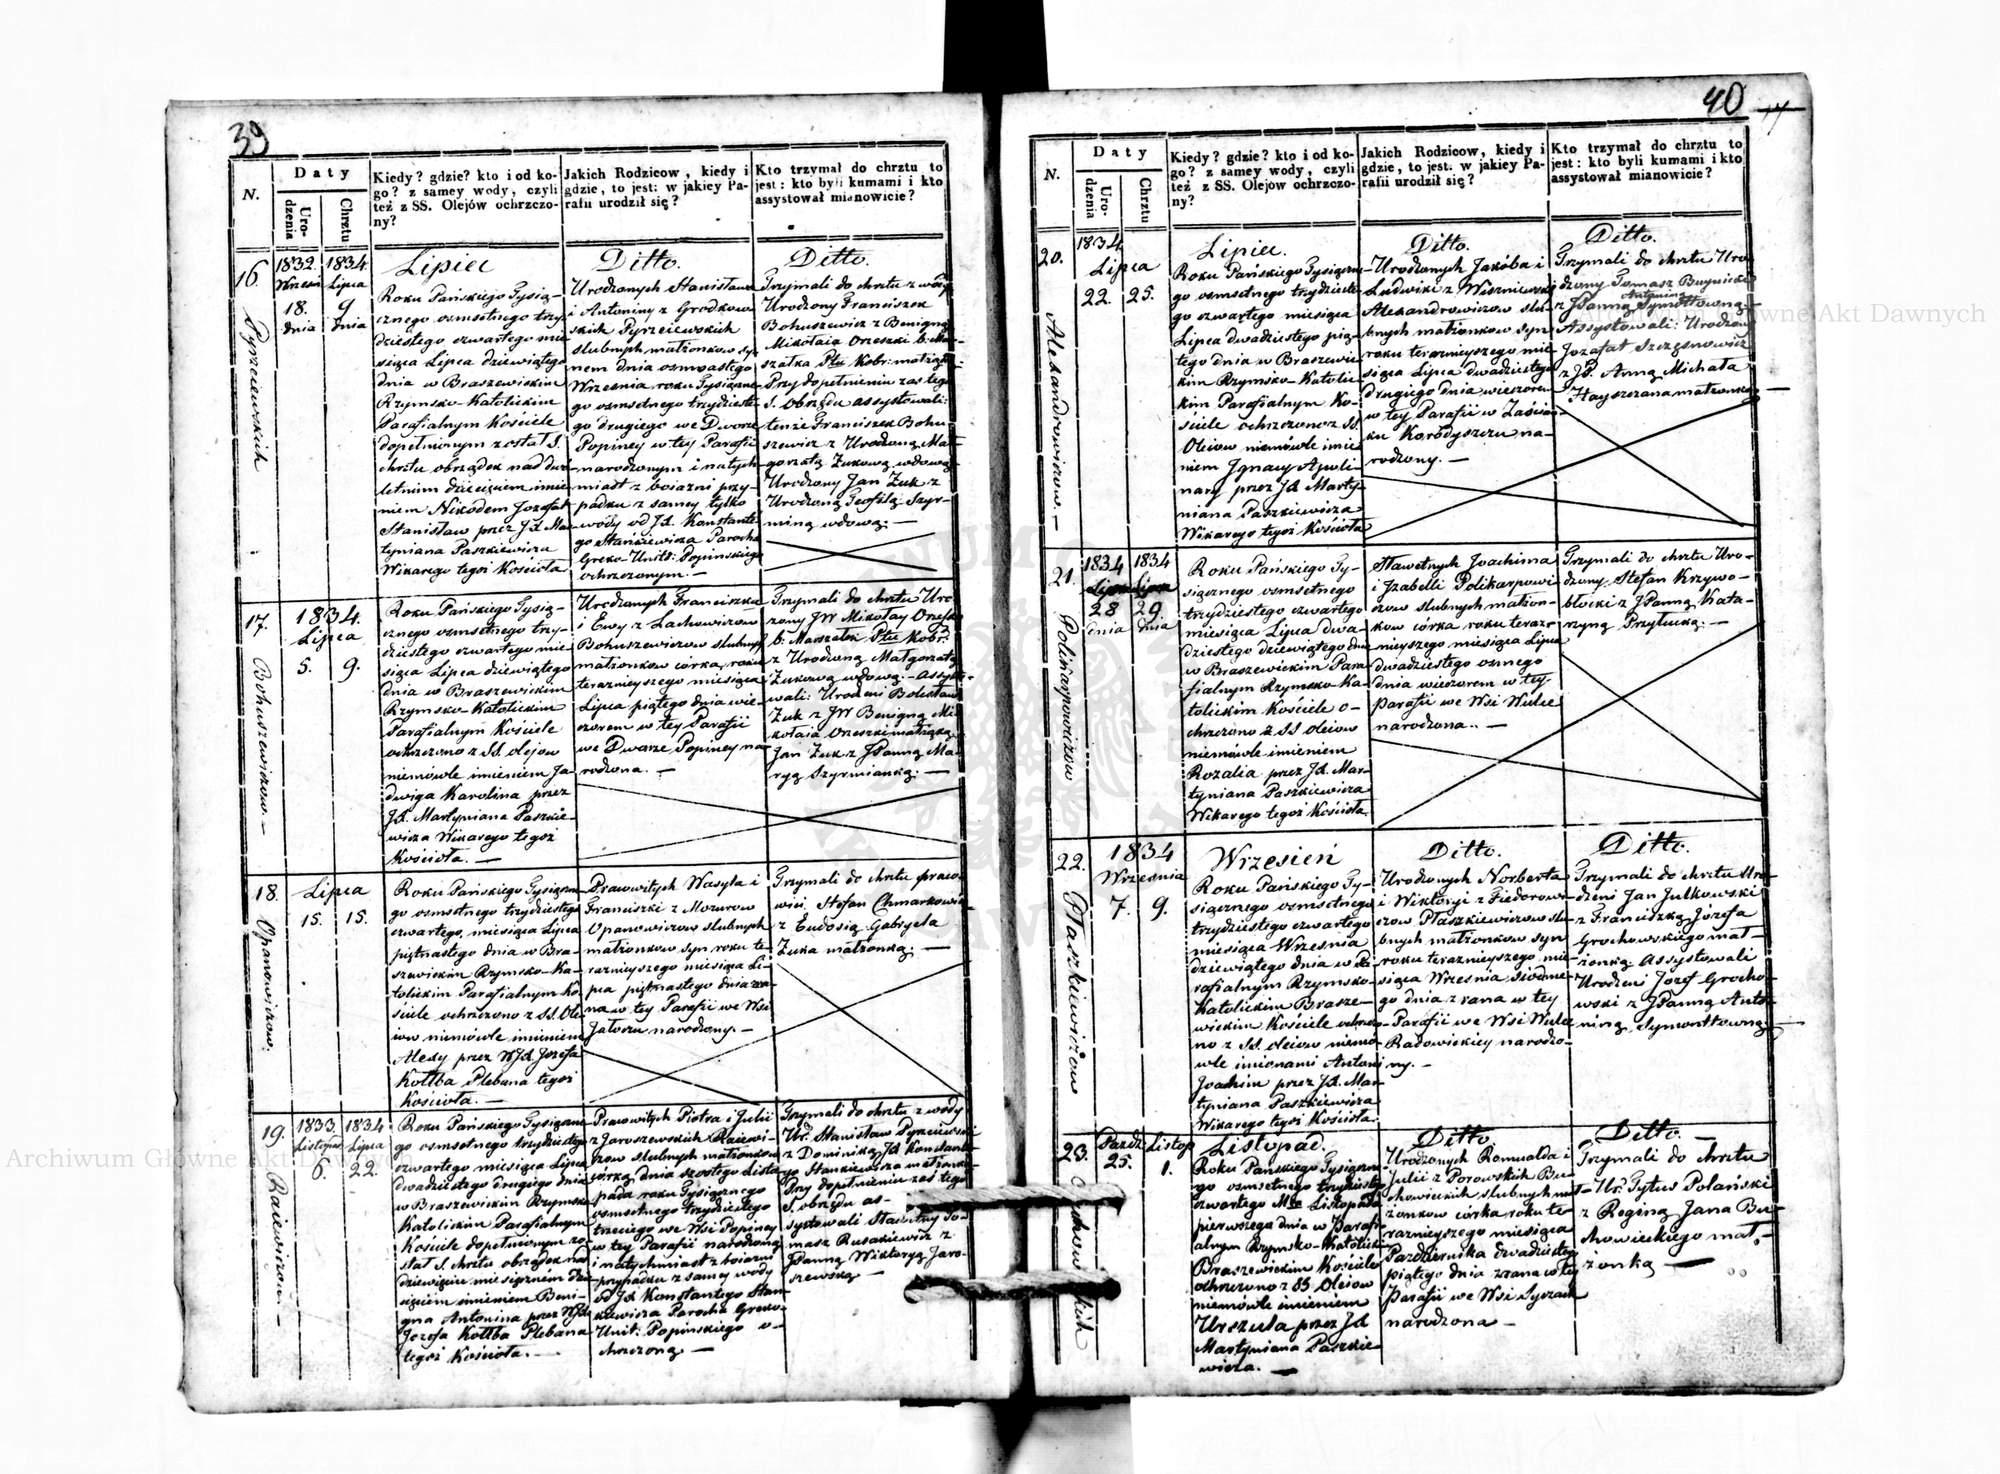 39
N.
Daty
Urodzenia
Chrztu
Kiedy? gdzie? kto i od ko-
go? z samey wody, czyli
też z SS. Olejów ochrzczo-
ny?
Jakich Rodzicow, kiedy i
gdzie, to jest: w jakiey Pa-
rafii urodził się?
Kto trzymał do chrztu to
jest: kto byli kumami i kto
assystował mianowicie?
16.
Pyrzeiewskich
1832.
Wrześn
18.
dnia
1834
Lipca
9
dnia
Lipiec
Roku Pańskiego Tysią-
cznego osmsetnego trzy-
dziestego czwartego mie-
siąca Lipca dziewiątego
dnia w Braszewickim
Rzymsko-Katolickim
Parafialnym Kościele
dopełnionym został S.
chrztu obrządek nad dwó-
letnim dziecięciem imie-
niem Nikodem Jozafat
Stanisław przez Jd. Ma-
tyniana Paszkiewicza
Wikarego tegoż Kościoła
Ditto.
Urodzonych Stanisława
i Antoniny z Grodkow-
skich Pyrzeiewskich
slubnych małżonkow sy-
nem dnia osmnastego
Września roku Tysiączne-
go osmsetnego trzydzieste-
go drugiego we Dworze
Popiney w tey Parafii
narodzonym i natych-
miast z boiaźni przy-
padku z samey tylko
wody od Jd. Konstante-
go Stańkiewicza Parocha
Greko-Unitt: Popińskiego
ochrzczonym. —
Ditto.
Trzymali do chrztu z wody
Urodzony Franciszek
Bohuszewicz z Benigną
Mikołaia Orzeszki b. Mar-
szałka Ptu Kobr: małżąką.
Przy dopełnieniu zaś tego
S. Obrzędu assystowali:
tenże Franciszek Bohu-
szewicz z Urodzoną Mał-
gorzatą Żukową wdową.
Urodzony Jan Żuk z
Urodzoną Teofilą Szyr-
miną wdową. —
17.
Bohuszewiczow. —
1834.
Lipca
5. 9.
Roku Pańskiego Tysią-
cznego osmsetnego trzy-
dziestego czwartego mie-
siąca Lipca dziewiątego
dnia w Braszewickim
Rzymsko-Katolickim
Parafialnym Kościele
ochrzczono z SS. olejow
niemowle imieniem Ja-
dwiga Karolina przez
Jd. Martyniana Paszkie-
wicza Wikarego tegoż
Kościoła. —
Urodzonych Franciszka
i Ewy z Lachowiczow
Bohuszewiczow slubnych
małżonkow córka, roku
teraznieyszego miesiąca
Lipca piątego dnia wie-
czorem w tey Parafii
we Dworze Popiney na-
rodzona. —
Trzymali do chrztu Uro-
zony JW Mikołay Orzeszko
b. Marszałek Ptu Kobr:
z Urodzoną Małgorzatą
Żukową wdową. — Assysto-
wali: Urodzeni Bolesław
Żuk z JW Benigną Mi-
kołaia Orzeszki małżąką
Jan Żuk z JPanną Ma-
ryą Szyrmianką. —
18.
Opanowiczow.
Lipca
15. 15.
Roku Pańskiego Tysiączne-
go osmsetnego trzydziestego
czwartego, miesiąca Lipca
piętnastego dnia w Bra-
szewickim Rzymsko-Ka-
tolickim Parafialnym Ko-
ściele ochrzczono z SS. Ole-
iow niemowle imieniem
Alexy przez WJd. Jozefa
Kołłba Plebana tegoż
Kościoła. —
Prawowitych Wasyla i
Franciszki z Mozurow
Opanowiczow slubnych
małżonkow syn roku te-
raznieyszego miesiąca Li-
pca piętnastego dnia zra-
na w tey Parafii we Wsi
Jatoczu narodzony. —
Trzymali do chrztu prawo-
wici Stefan Chmarkowicz
z Eudosią Gabryela
Żuka małżonką. —
19.
Raiewiczow. —
1833
Listopad
6.
1834
Lipca
22.
Roku Pańskiego Tysiączne-
go osmsetnego trzydziestego
czwartego miesiąca Lipca
dwudziestego drugiego dnia
w Braszewickim Rzymsko
Katolickim Parafialnym
Kościele dopełnionym zo-
stał S. chrztu obrządek nad
dziewięciu miesięcznem dzie-
cięciem imieniem Beni-
gna Antonina przez WJd.
Jozefa Kołłba Plebana
tegoż Kościoła. —
Prawowitych Piotra i Julii
z Jaroszewskich Raiewi-
czow slubnych małżonkow
córką, dnia szostego Listo-
pada roku Tysiącznego
osmsetnego trzydziestego
trzeciego we Wsi Popiney
w tey Parafii narodzoną
i natychmiast z boiaźni
przypadku z samey wody
od Jd. Konstantego Stan-
kiewicza Parocha Greko-
Unit: Popińskiego o-
chrzczoną. —
Trzymali do chrztu z wody
Ur. Stanisław Pyrzeiewski
z Dominiką Jd. Konstante-
go Stankiewicza małżonką.
Przy dopełnieniu zaś tego
S. obrzędu as-
systowali Sławetny To-
masz Rusakiewicz z
JPanną Wiktoryą Jaro-
szewską. —
40
N.
Daty
Urodzenia
Chrztu
Kiedy? gdzie? kto i od ko-
go? z samey wody, czyli
też z SS. Olejów ochrzczo-
ny?
Jakich Rodzicow, kiedy i
gdzie, to jest: w jakiey Pa-
rafii urodził się?
Kto trzymał do chrztu to
jest: kto byli kumami i kto
assystował mianowicie?
20.
Alexandrowiczow. —
1834
Lipca
22. 25.
Lipiec.
Roku Pańskiego Tysiączne-
go osmsetnego trzydzieste-
go czwartego miesiąca
Lipca dwudziestego pią-
tego dnia w Braszewic-
kim Rzymsko-Katolic-
kim Parafialnym Ko-
ściele ochrzczono z SS.
Oleiow niemowle imie-
niem Ignacy Apoli-
nary przez Jd. Marty-
niana Paszkiewicza
Wikarego tegoż Kościoła
Ditto.
Urodzonych Jakóba i
Ludwiki z Wiszniewskich
Alexandrowiczow slu-
bnych małżonkow syn
roku teraznieyszego mie-
siąca Lipca dwudziestego
drugiego dnia wieczorem
w tey Parafii w Zaścian-
ku Korodyszczu na-
rodzony. —
Ditto.
Trzymali do chrztu Uro-
dzony Tomasz
z JPanną Antoniną Symottowną
Assystowali: Urodzony
Jozafat Szczęsnowicz
z JP. Anną Michała
Hayszczana małżonką. —
21.
Polikarpowiczow
1834
Lipca
28
dnia
1834
Lipca
29
dnia
Roku Pańskiego Ty-
siącznego osmsetnego
trzydziestego czwartego
miesiąca Lipca dwu-
dziestego dziewiątego dnia
w Braszewickim Para-
fialnym Rzymsko-Ka-
tolickim Kościele o-
chrzczono z SS oleiow
niemowle imieniem
Rozalia przez Jd. Mar-
tyniana Paszkiewicza
Wikarego tegoż Kościoła
Sławetnych Joachima
i Izabelli Polikarpowi-
czow slubnych małżon-
kow córka roku teraz-
nieyszego miesiąca Lipca
dwudziestego osmego
dnia wieczorem w tey
Parafii we Wsi Wulce
narodzona. —
Trzymali do chrztu Uro-
dzony Stefan Krzywo-
błocki z JPanną Kata-
rzyną Przyłucką. —
22.
Płaszkiewiczow
1834
Września
7. 9.
Wrzesień
Roku Pańskiego Ty-
siącznego osmsetnego
trzydziestego czwartego
miesiąca Września
dziewiątego dnia w Pa-
rafialnym Rzymsko-
Katolickim Brasze-
wickim Kościele ochrzczo-
no z SS. oleiow niemo-
wle imionami Antoni
Joachim przez Jd. Mar-
tyniana Paszkiewicza
Wikarego tegoż Kościoła.
Ditto.
Urodzonych Norberta
i Wiktoryi z Fiedorowi-
czow Płaszkiewiczow slu-
bnych małżonkow syn
roku teraznieyszego mie-
siąca Września siodme-
go dnia z rana w tey
Parafii we Wsi Wulce
Radowieckiey narodzo-
ny. —
Ditto.
Trzymali do chrztu Uro-
dzeni Jan Julkowski
z Franciszką Jozefa
Grochowskiego mał-
żonką. Assystowali
Urodzeni Jozef Grocho-
wski z JPanną Anto-
niną Symonttowną
23.
Paźdz.
25.
Listop
1.
Listopad.
Roku Pańskiego Tysiączne-
go osmsetnego trzydziestego
czwartego Mca Listopada
pierwszego dnia w Parafi-
alnym Rzymsko-Katolickim
Braszewickim Kościele
ochrzczono z SS. Oleiow
niemowle imieniem
Urszula przez Jd.
Martyniana Paszkie-
wicza. —
Ditto.
Urodzonych Romualda i
Julii z Porowskich Bu-
chowieckich slubnych mał-
żonkow córka roku te-
raznieyszego miesiąca
Października dwudziestego
piątego dnia zrana w tey
Parafii we Wsi Syczach
narodzona —
Ditto.
Trzymali do chrztu
Ur. Tytus Polański
z Reginą Jana Bu-
chowieckiego mał-
żonką —
Archiwum Główne Akt Dawnych
Archiwum Główne Akt Dawnych